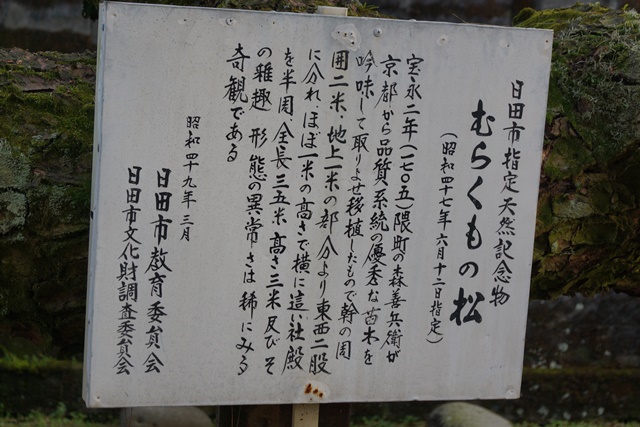 日田市指定天然記念物
むらくもの松
(昭和四十七年六月十二日指定)
宝永二年(一七〇五)隈町の森善兵衛が
京都から品質系統の優秀な苗木を
吟味して取りよせ移植したもので幹の周
囲二米、地上一米の部分より東西二股
に分れ、ほぼ一米の高さで横に這い社殿
を半周、全長三五米、高さ三米及びそ
の雅趣形態の異常さは稀にみる
奇観である
昭和四十九年三月
日田市教育委員会
日田市文化財調査委員会